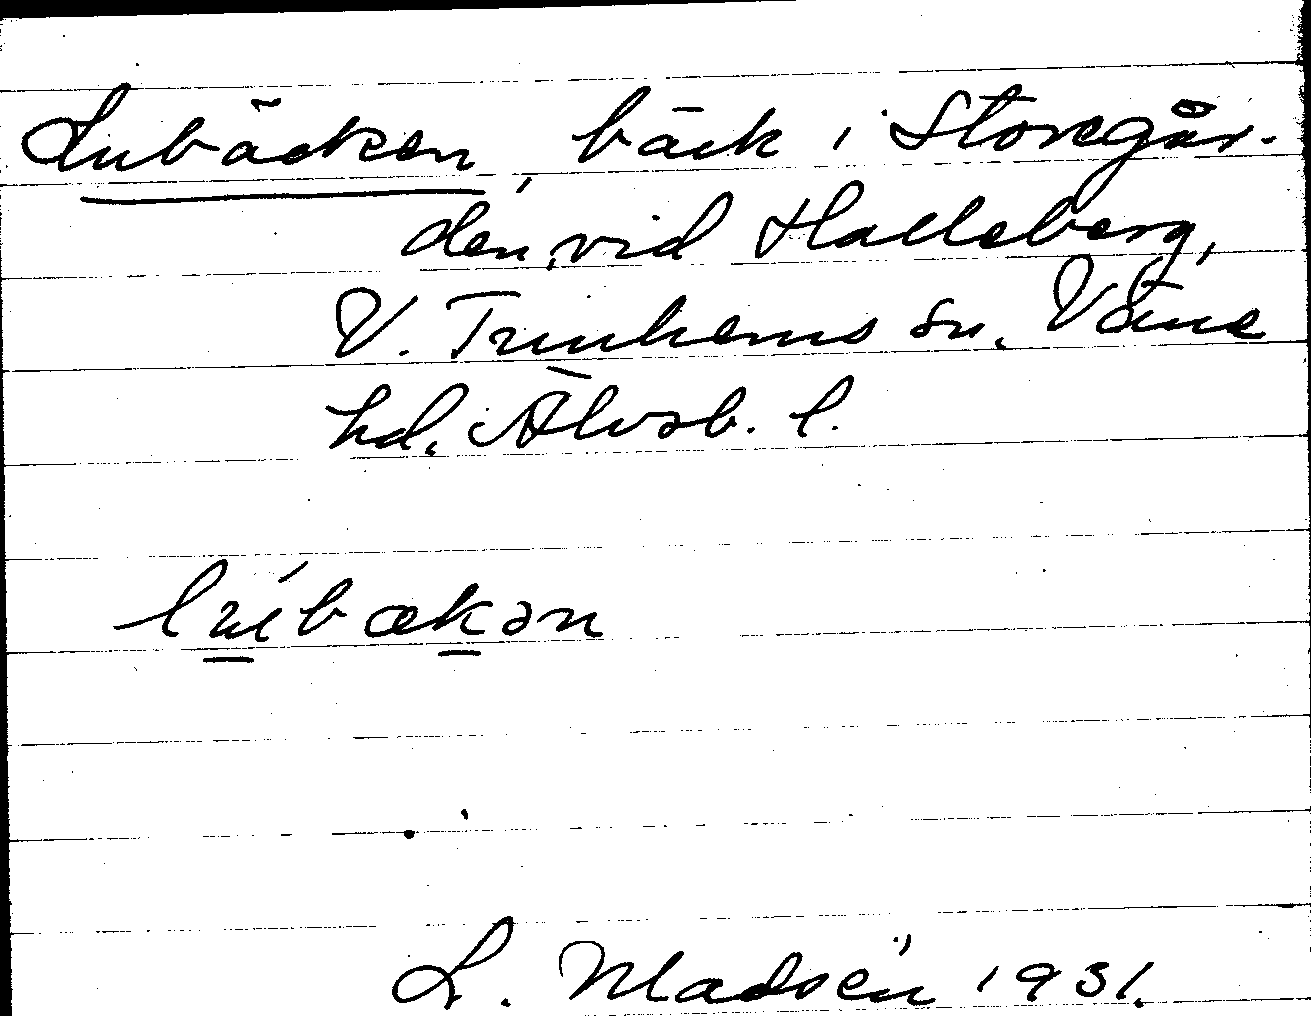 Lubäcken, bäck i Storegår-
den, vid Halleberg,
V. Tunhems sn. Väne
hd. Älvsb. l.
lú̲bæk̲ən
L. Madsén 1931.